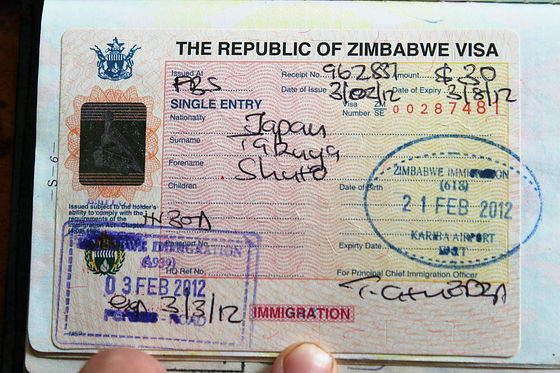 THE REPUBLIC OF ZIMBABWE VISA
Issued At PBS Receipt No. 962837 Amount $30
Date of Issue 3/02/12 Date of Expiry 3/8/12
SINGLE ENTRY Visa Number ZM SE 00287481
Nationality Japan
Surname Takuya
Forename Shuto
Children
Date of Birth
Issued subject to the holder's
ability to comply with the
requirements of the
Immigration Act- Chapter
ZIMBABWE IMMIGRATION
(613)
21 FEB 2012
KARIBA AIRPORT
Expiry Date
IMMIGRATION
HQ Ref No
03 FEB 2012
exp 3/3/12
For Principal Chief Immigration Officer
IMMIGRATION
- S - 6 -